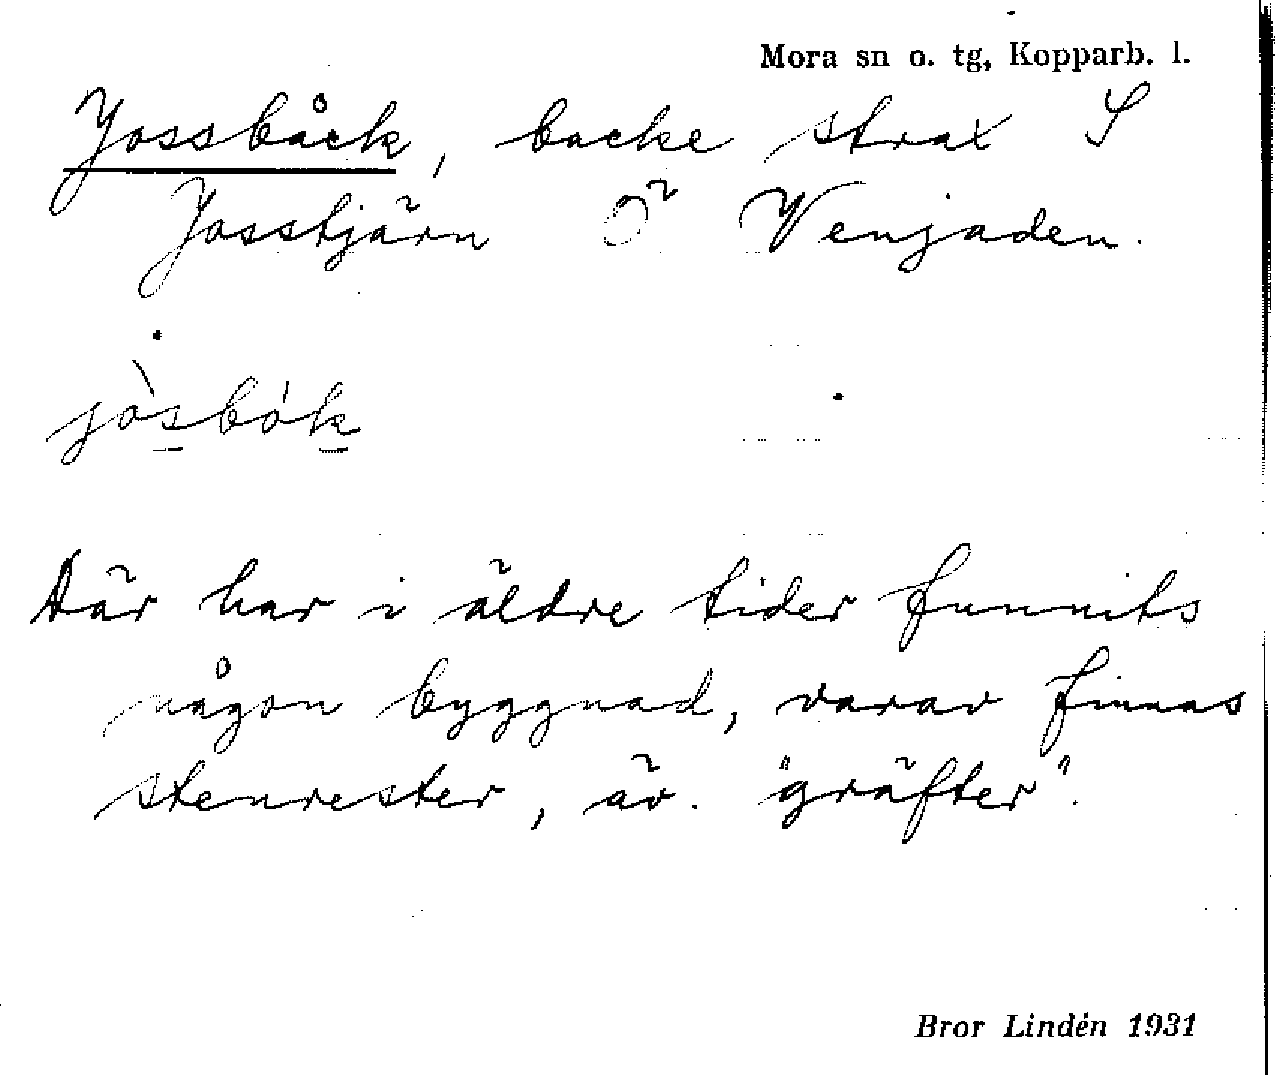 Mora sn o. tg, Kopparb. l.
Jossbåck, backe strax S
Josstjärn Ö Venjaden.
jòsbók
Där har i äldre tider funnits
någon byggnad, varav finnas
stenrester, äv. "gräfter".
Bror Lindén 1931